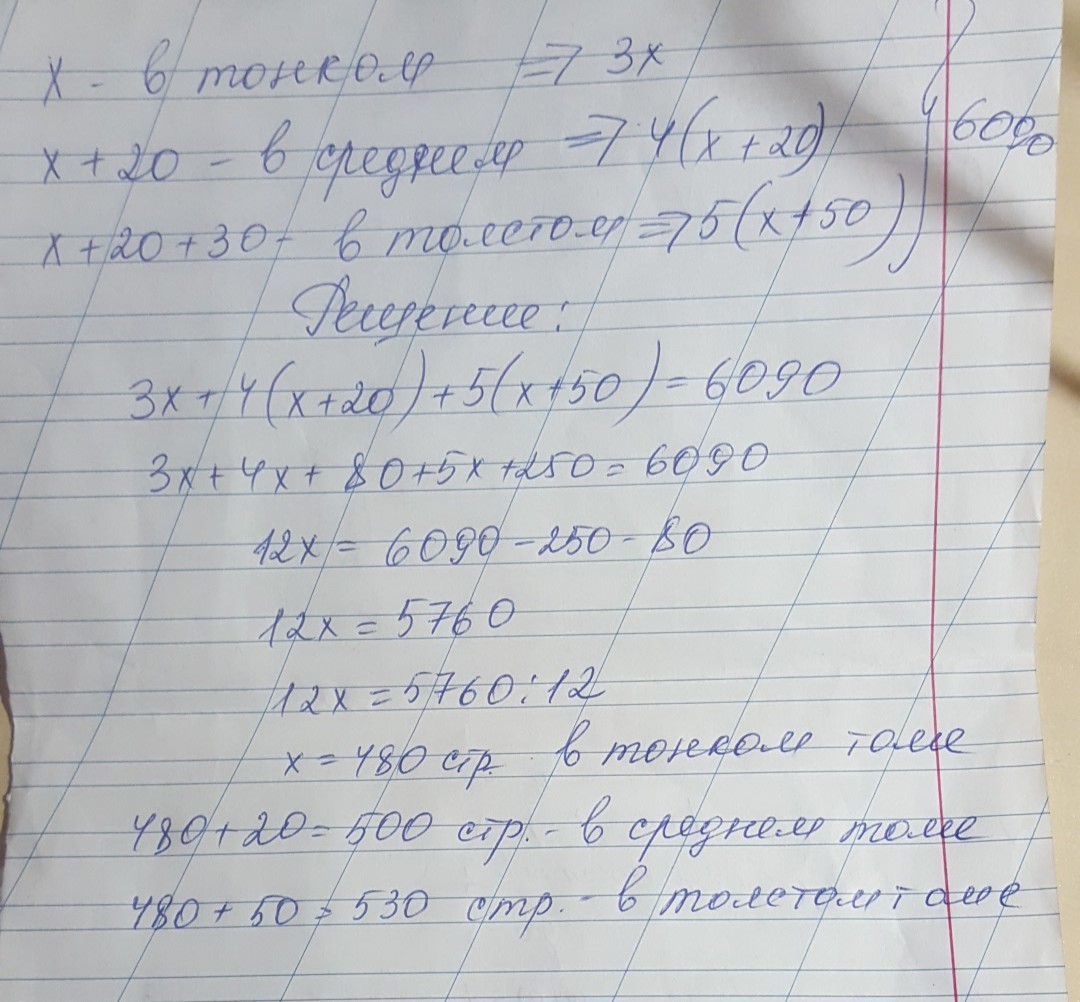 x - в тонком => 3x
x+20 - в среднем => 4(x+20)
x+20+30 - в толстом => 5(x+50) } 6090
Решение:
3x+4(x+20)+5(x+50)=6090
3x+4x+80+5x+250=6090
12x = 6090-250-80
12x = 5760
12x = 5760:12
x = 480 стр. в тонком томе
480+20=500 стр. - в среднем томе
480+50=530 стр. - в толстом томе